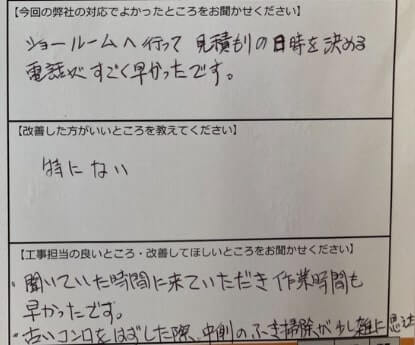 【今回の弊社の対応でよかったところをお聞かせください】
ショールームへ行って見積もりの日時を決める
電話がすごく早かったです。
【改善した方がいいところを教えてください】
特にない
【工事担当の良いところ・改善してほしいところをお聞かせください】
・聞いていた時間に来ていただき作業時間も
早かったです。
・古いコンロをはずした際、中側のふき掃除が少し雑に思